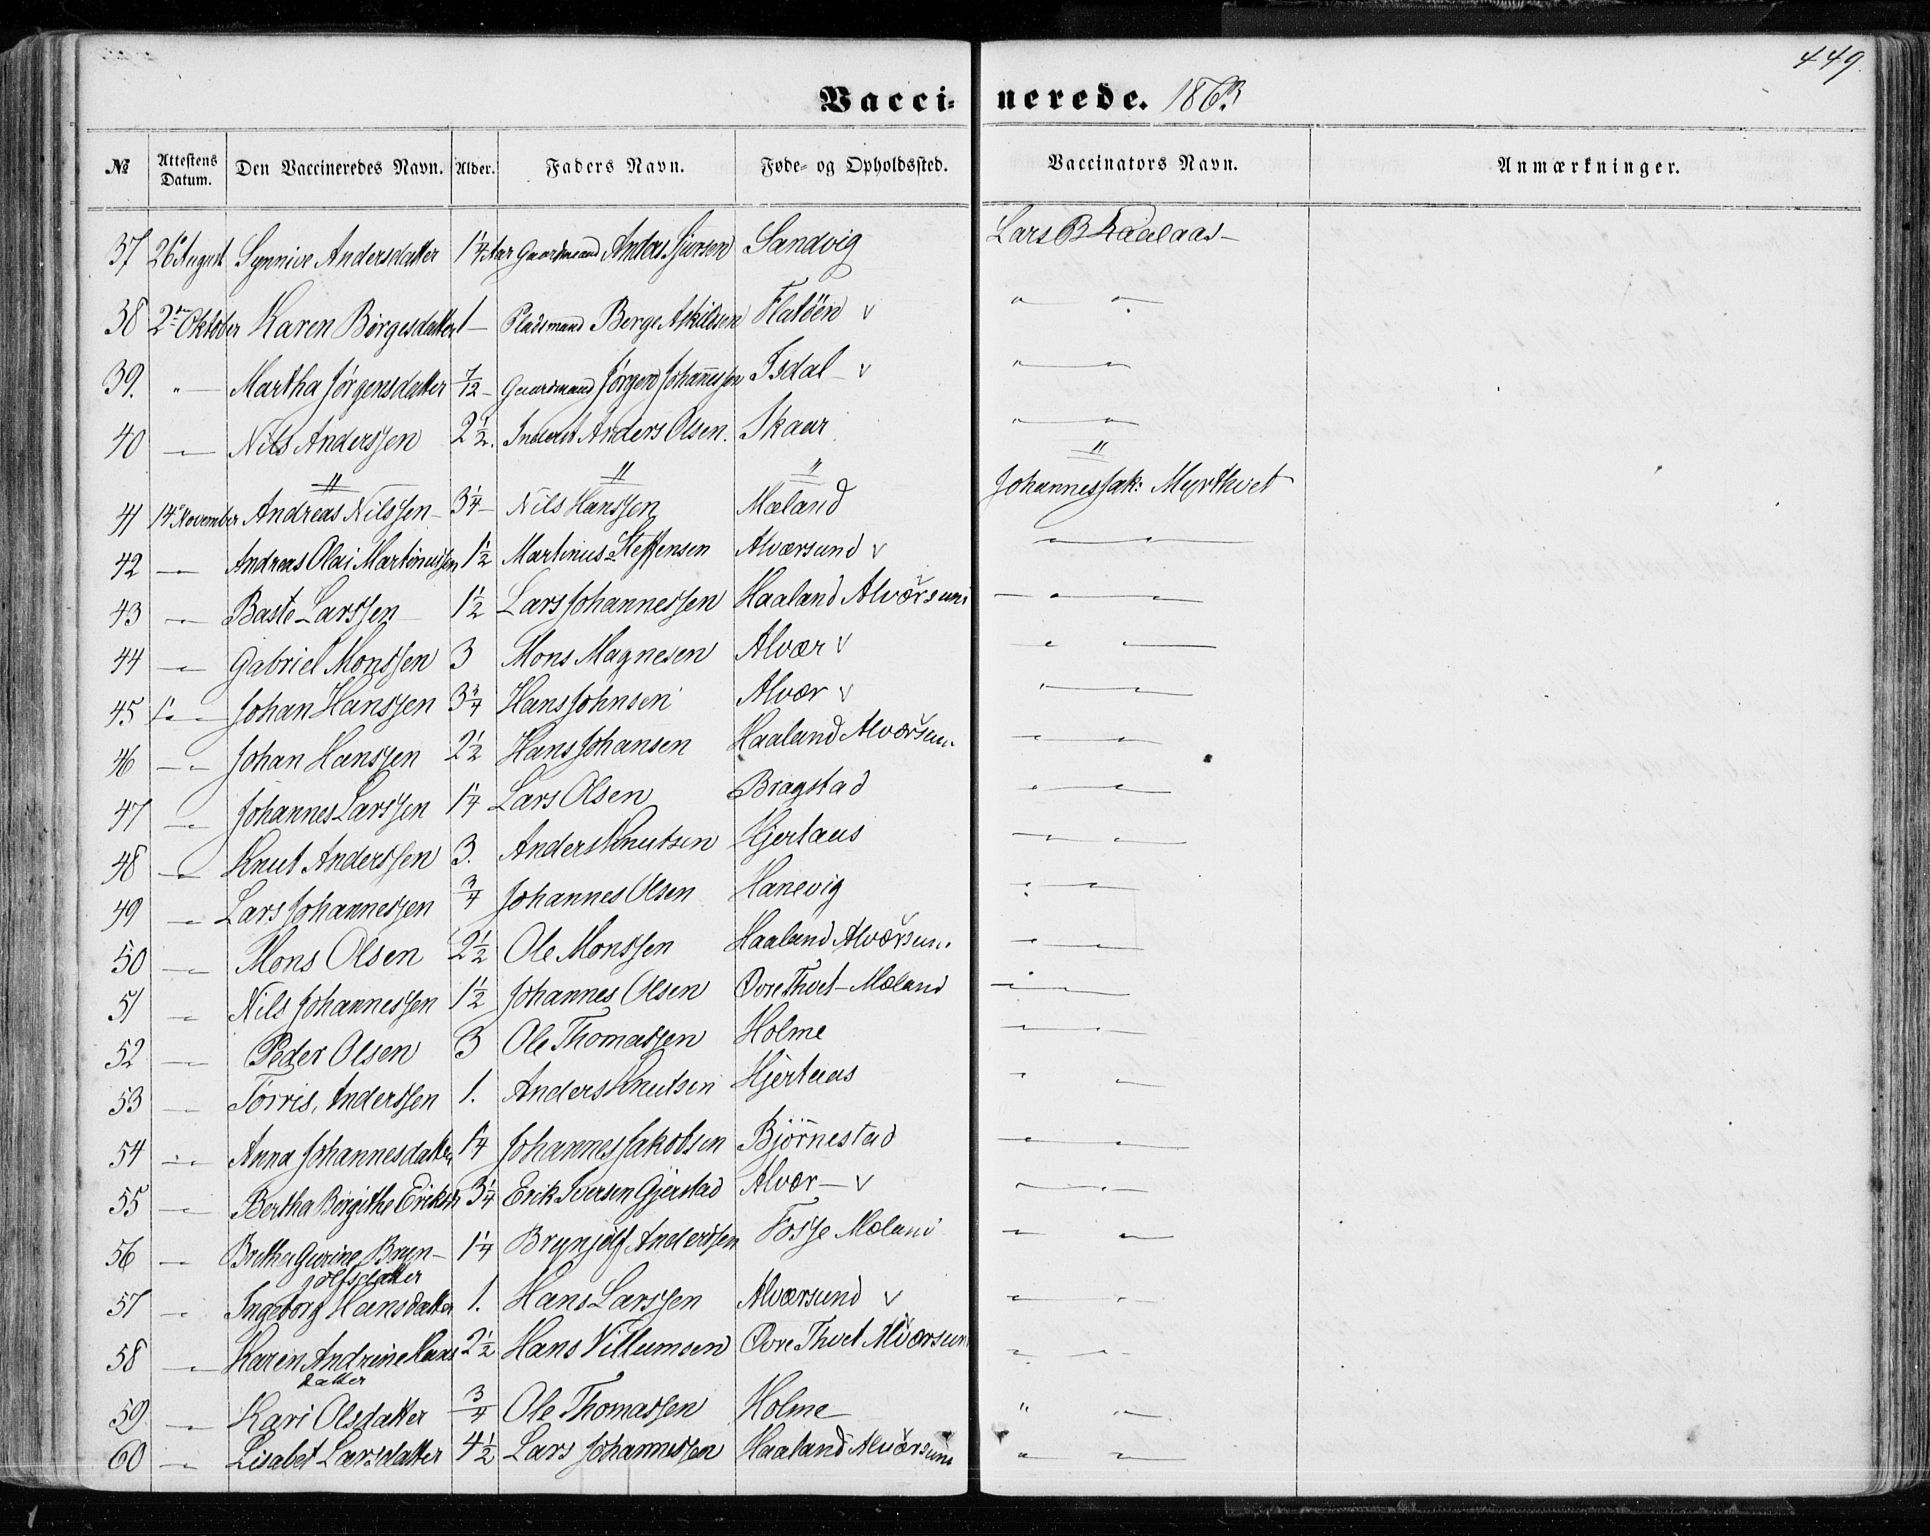 449.
Vacci- nerede. 1863
№ Attestens Datum. Den Vaccineredes Navn. Alder. Faders Navn. Føde- og Opholdssted. Vaccinators Navn. Anmærkninger.
37 26 August Synnive Andersdatter 1¼ Aar Gaardmand Anders Sjursen Sandvig Lars B Kaalaas
38 2den Oktober Karen Børgesdatter 1 — Pladsmand Berge Askildsen Flatöen v " "
39. " — Martha Jörgensdatter 7/12 — Gaardmand Jörgen Johannessen Isdal — v " "
40 — " — Nils Anderssen 2½. Inderst Anders Olsen. Skaar " "
" " " "
41 14 November Andreas Nilssen — 3¼ — Nils Hanssen Mæland Johannes Jak: Myrthvet
42 — " — Andreas Olai Martinussen 1½ Martinus Steffensen Alværsund v " "
43 — " — Baste Larssen 1½ Lars Johannessen Haaland Alværsund " "
44 — " — Gabriel Monssen 3 Mons Magnesen Alvær v " "
45 — " — Johan Hanssen 3¾ Hans Johnsen Alvær v " "
46 — " — Johan Hanssen 2½ Hans Johansen Haaland Alværsun. " "
47 — " — Johannes Larssen 1¼ Lars Olsen Bragstad " "
48 — " — Knut Anderssen 3. Anders Knutsen Hjertaas " "
49 — " — Lars Johannessen ¾ Johannes Olsen Hanevig " "
50 — " — Mons Olsen 2½ Ole Monssen Haaland Alværsun. " "
51 — " — Nils Johannessen 1½ Johannes Olsen Øvre Thvet — Mæland " "
52 — " — Peder Olsen 3 Ole Thomassen Holme " "
53 — " — Törris, Anderssen 1. Anders Knutsen Hjertaas " "
54 — " — Anna Johannesdatter 1¼ Johannes Jakobsen Bjørnestad " "
55 — " — Bertha Birgithe Eriksdr 3¼ Erik Iversen Gjerstad Alvær — v " "
56 — " — Bretha Gurine Bryn- 1¼ Brynjolf Anderssen Fosse Mæland " "
jolfsdatter
57 — " — Ingeborg Hansdatter 1. Hans Larssen Alværsund v " "
58 — " — Karen Andrine Hans 2½ Hans Villumsen Øvre Thvet Alværsun " "
datter
59 — " — Kari Olsdatter ¾ Ole Thomassen Holme " "
60 — " — Lisabet Larsdatter 4½ Lars Johannessen Haaland Alværsund " "